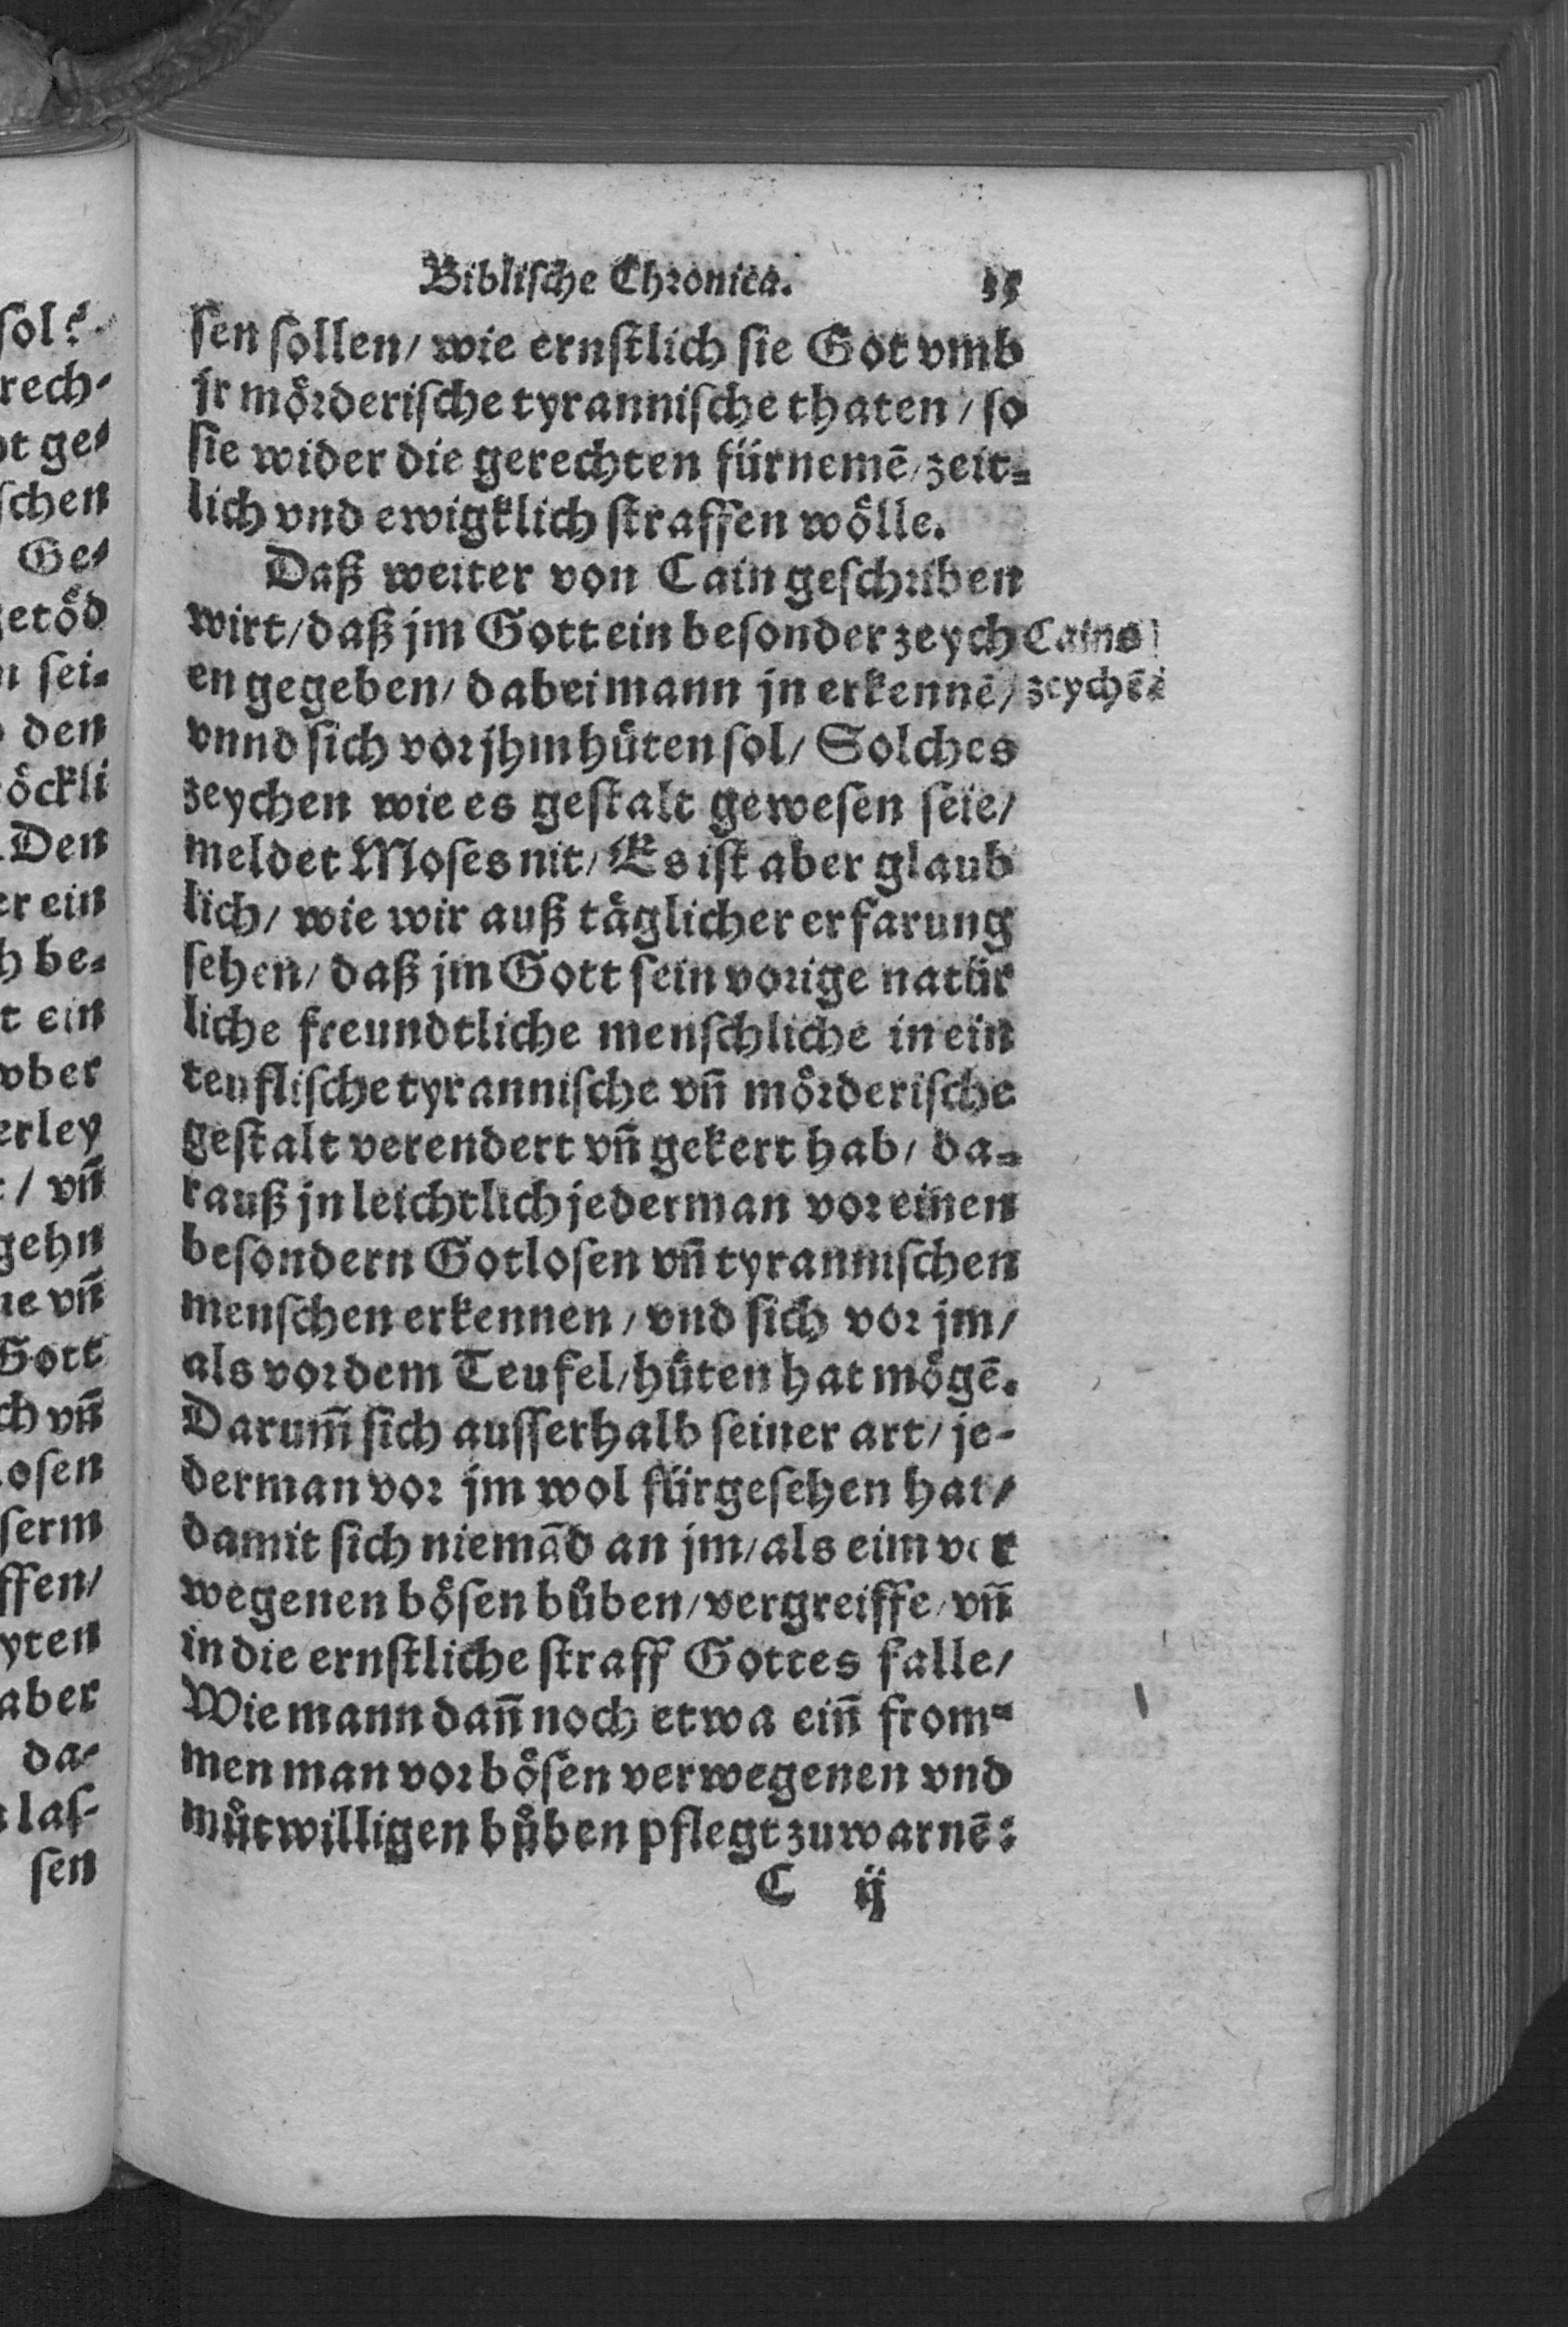 Biblische Chronica.
sen sollen/ wie ernstlich sie Got vmb
jr mörderische tyrannische thaten/ so
sie wider die gerechten fürnemē/ zeit=
lich vnd ewigklich straffen wölle.
Daß weiter von Cain geschriben
wirt/ daß jm Gott ein besonder zeych
Cains
en gegeben/ dabei mann jn erkennē/
zeychē
vnnd sich vor jhm hüten sol/ Solches
zeychen wie es gestalt gewesen seie/
meldet Moses nit/ Es ist aber glaub
lich/ wie wir auß täglicher erfarung
sehen/ daß jm Gott sein vorige natür
liche freundtliche menschliche in ein
teuflische tyrannische vn̄ mörderische
gestalt verendert vn̄ gekert hab/ da=
rauß jn leichtlich jederman vor einen
besondern Gotlosen vn̄ tyrannischen
menschen erkennen/ vnd sich vor jm/
als vor dem Teufel/ hüten hat mögē.
Darum̄ sich ausserhalb seiner art/ je=
derman vor jm wol fürgesehen hat/
damit sich niemād an jm/ als eim ver
wegenen bösen bůben/ vergreiffe/ vn̄
in die ernstliche straff Gottes falle/
Wie mann dan̄ noch etwa ein̄ from=
men man vor bösen verwegenen vnd
můtwilligen bůben pflegt zu warnē:
C ij
sol
rech=
ot ge=
schen
Ge=
getöd
n sei=
den
öckli
Den
er ein
h be=
t ein
ober
erley
/ vn̄
gehn
ne vn̄
Gott
ch vn̄
losen
serm
ffen/
yten
aber
da=
las=
sen